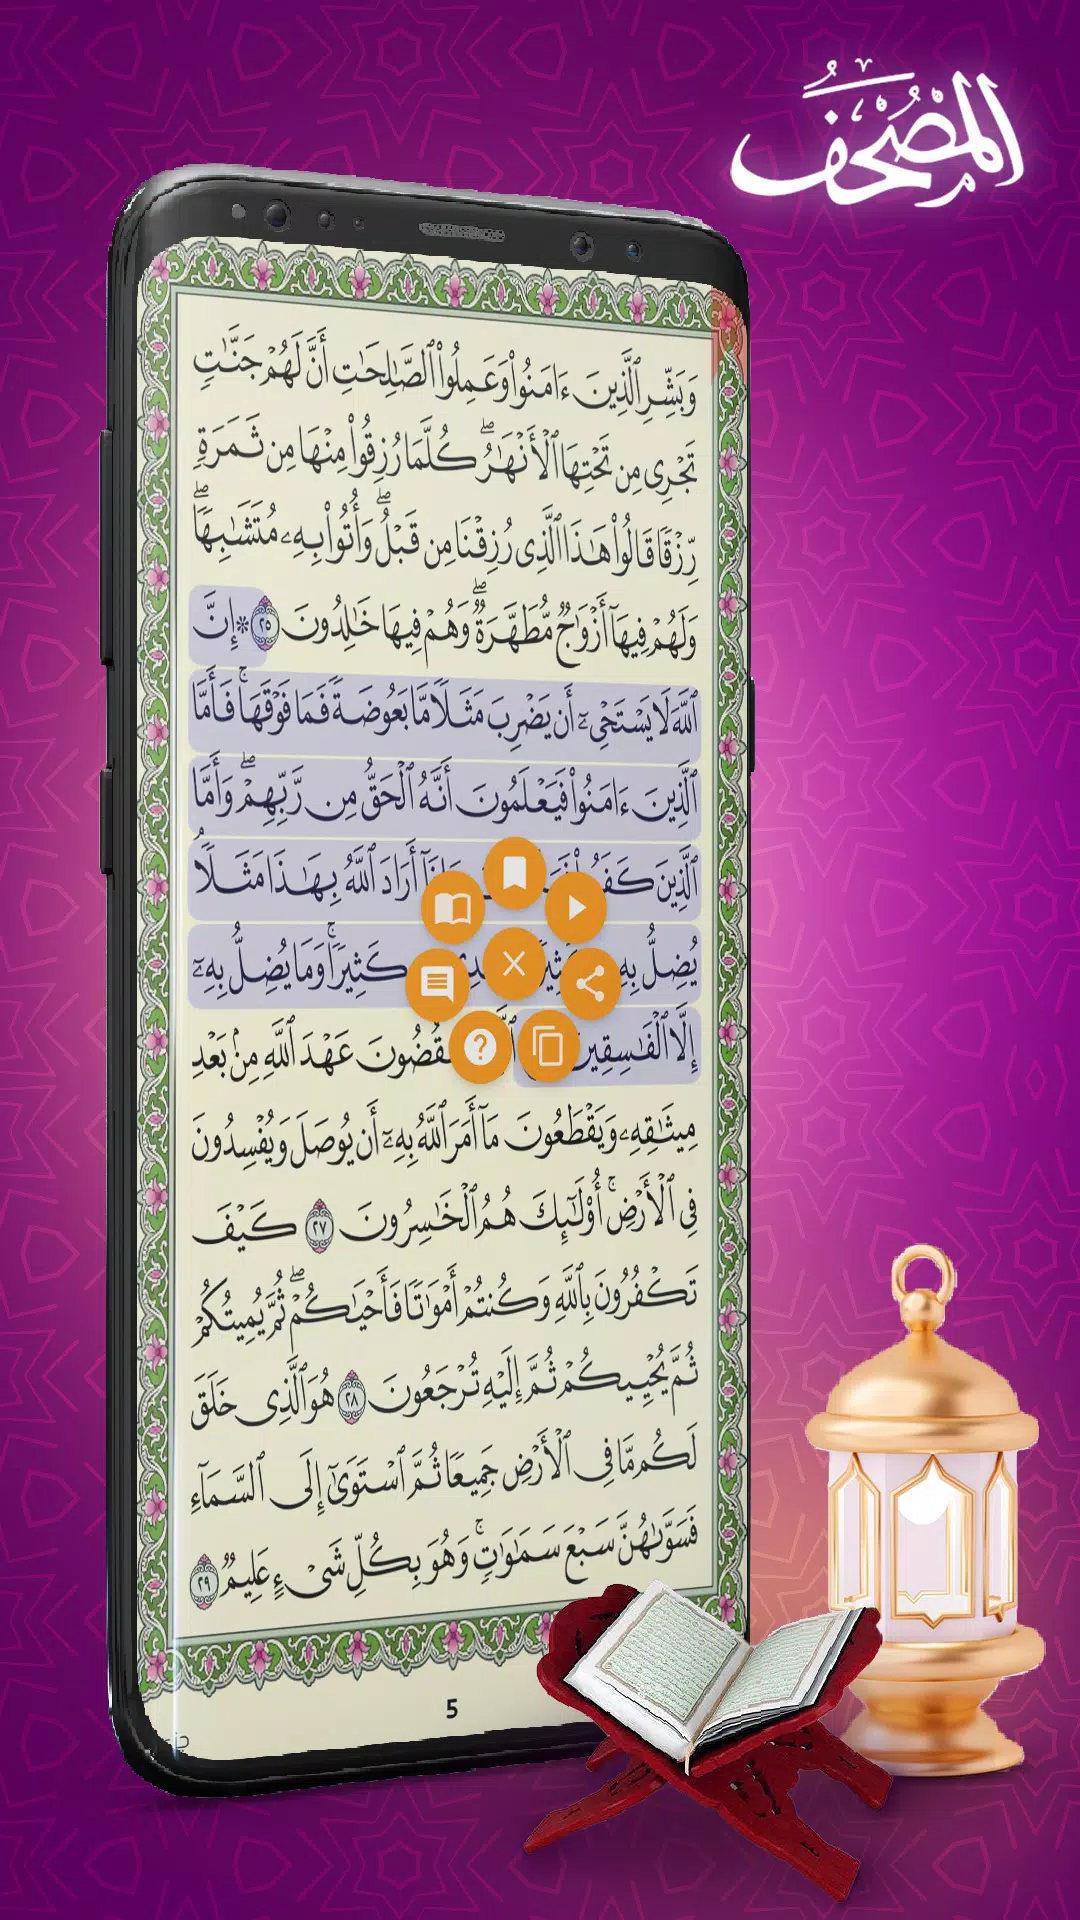 المصحف
وَبَشِّرِ ٱلَّذِينَ ءَامَنُوا۟ وَعَمِلُوا۟ ٱلصَّٰلِحَٰتِ أَنَّ لَهُمْ جَنَّٰتٍ
تَجْرِى مِن تَحْتِهَا ٱلْأَنْهَٰرُ ۖ كُلَّمَا رُزِقُوا۟ مِنْهَا مِن ثَمَرَةٍ
رِّزْقًا قَالُوا۟ هَٰذَا ٱلَّذِى رُزِقْنَا مِن قَبْلُ ۖ وَأُتُوا۟ بِهِۦ مُتَشَٰبِهًا ۖ
وَلَهُمْ فِيهَآ أَزْوَٰجٌ مُّطَهَّرَةٌ ۖ وَهُمْ فِيهَا خَٰلِدُونَ ٢٥ ۞ إِنَّ
ٱللَّهَ لَا يَسْتَحْىِۦٓ أَن يَضْرِبَ مَثَلًا مَّا بَعُوضَةً فَمَا فَوْقَهَا ۚ فَأَمَّا
ٱلَّذِينَ ءَامَنُوا۟ فَيَعْلَمُونَ أَنَّهُ ٱلْحَقُّ مِن رَّبِّهِمْ ۖ وَأَمَّا
ٱلَّذِينَ كَفَرُوا۟ أَرَادَ ٱللَّهُ بِهَٰذَا مَثَلًا
يُضِلُّ بِهِ كَثِيرًا ۚ وَمَا يُضِلُّ بِهِۦٓ
إِلَّا ٱلْفَٰسِقِينَ عَهْدَ ٱللَّهِ مِنۢ بَعْدِ
مِيثَٰقِهِۦ وَيَقْطَعُونَ مَآ أَمَرَ ٱللَّهُ بِهِۦٓ أَن يُوصَلَ وَيُفْسِدُونَ
فِى ٱلْأَرْضِ ۚ أُو۟لَٰٓئِكَ هُمُ ٱلْخَٰسِرُونَ ٢٧ كَيْفَ
تَكْفُرُونَ بِٱللَّهِ وَكُنتُمْ أَمْوَٰتًا فَأَحْيَٰكُمْ ۖ ثُمَّ يُمِيتُكُمْ
ثُمَّ يُحْيِيكُمْ ثُمَّ إِلَيْهِ تُرْجَعُونَ ٢٨ هُوَ ٱلَّذِى خَلَقَ
لَكُم مَّا فِى ٱلْأَرْضِ جَمِيعًا ثُمَّ ٱسْتَوَىٰٓ إِلَى ٱلسَّمَآءِ
فَسَوَّىٰهُنَّ سَبْعَ سَمَٰوَٰتٍ ۚ وَهُوَ بِكُلِّ شَىْءٍ عَلِيمٌ ٢٩
5